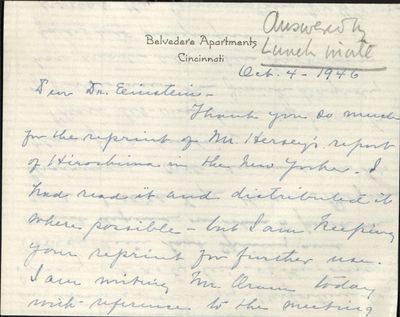 Answered by
Lunch invite
Belvedere Apartments
Cincinnati
Oct. 4 - 1946
Dear Dr. Einstein -
Thank you so much
for the reprint of Mr. Hersey's report
of Hiroshima in the New Yorker. I
had read it and distributed it
where possible - but I am keeping
your reprint for further use.
I am writing Mr. Oram today
with reference to the meeting